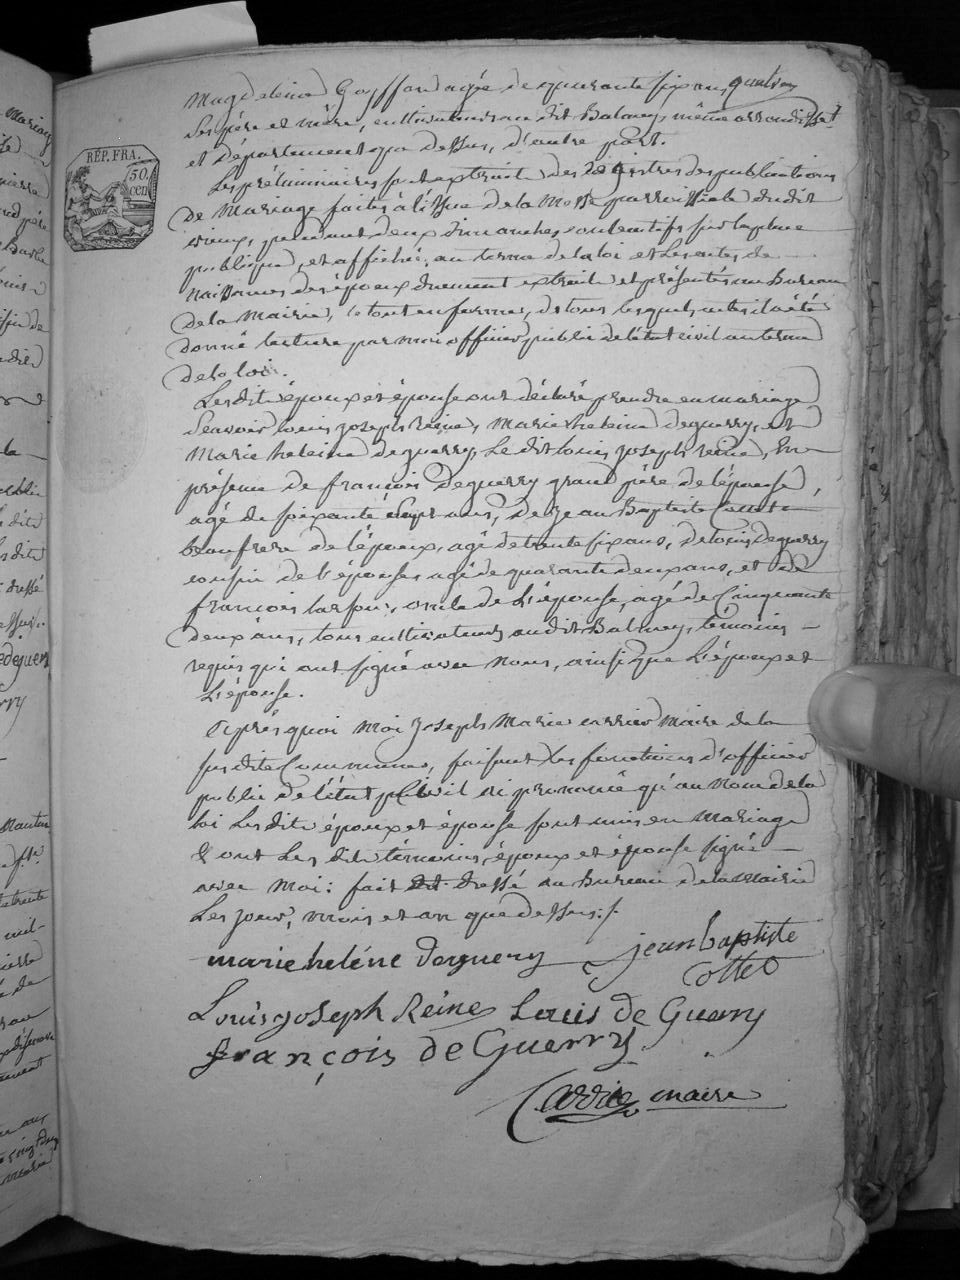 RÉP. FRA.
50
cen
Magdeleine Goyffon agée de quarante six ans
ses père et mère, cultivateurs au dit Balmey, même arrondisst
et département que dessus, d'autre part.
Les préliminaires sont extrait des registres des publications
de Mariage faites à l'issue de la Messe parroissiale dudit
vieux, pendant deux dimanches consécutifs sur la place
publique, et affichés au terme de la loi et les actes de
naissances des époux duement extraits et présentés au Bureau
de la Mairie, le tout en forme, de tous lesquels actes il a été
donné lecture par moi officier public de l'état civil au terme
de la loi.
Les dits époux et épouse ont déclaré prendre en mariage
savoir louis joseph Reine, Marie heleine deguerry, et
Marie heleine deguerry, le dit louis joseph reine, En
présence de françois deguerry grand père de l'épouse,
agé de soixante ans, de jean Baptiste Cottet
beaufrere de l'époux, agé de trente six ans, de louis deguerry
cousin de l'épouse agé de quarante deux ans, et de
francois oncle de l'épouse, agé de Cinquante
deux ans, tous cultivateurs audit Balmey, témoins
requis qui ont signé avec nous, ainsi que l'époux et
L'épouse.
Après quoi Moi Joseph Marie carrier Maire de la
susdite Commune, faisant les fonctions d'officier
public de l'état civil ai prononcé qu'au nom de la
loi les dits époux et épouse sont unis en Mariage
& ont les dits témoins, époux et épouse signé
avec Moi: fait dressé au Bureau de la Mairie
Les jour, mois et an que dessus ./.
marie heléne deguerry jean baptiste
cottet
Louis joseph Reine Louis de Guerry
françois de Guerry
Carrier maire